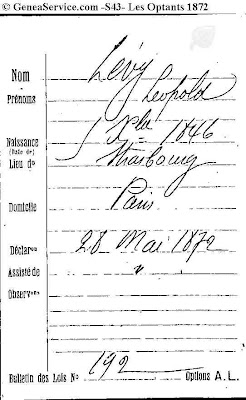 © GeneaService.com -S43- Les Optants 1872
Nom Lévy
Prénoms Leopold
Naissance 1846
(Date de)
Lieu de Strasbourg
Domicile Paris
Déclaron 28 Mai 1872
Assisté de "
Observons
Bulletin des Lois No 192 Options A.L.